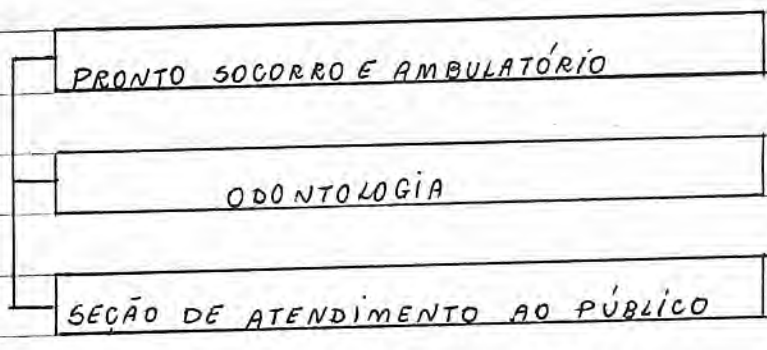 PRONTO SOCORRO E AMBULATÓRIO
ODONTOLOGIA
SEÇÃO DE ATENDIMENTO AO PÚBLICO